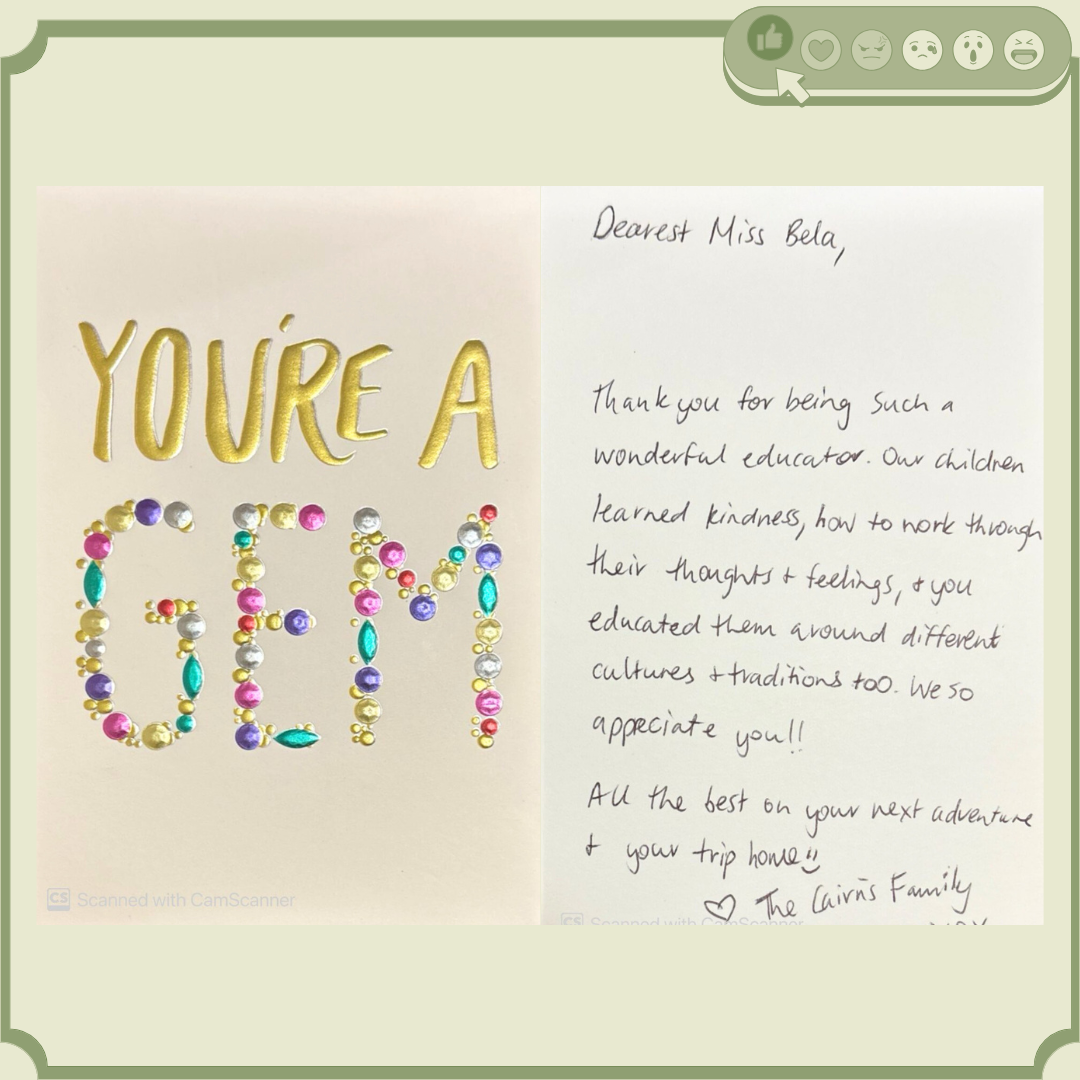 YOU'RE A
GEM
CS Scanned with CamScanner
Dearest Miss Bela,
Thank you for being such a
wonderful educator. Our children
learned kindness, how to work through
their thoughts + feelings, + you
educated them around different
cultures + traditions too. We so
appreciate you!!
All the best on your next adventure
+ your trip home
The Cairns Family
CS Scanned with CamScanner